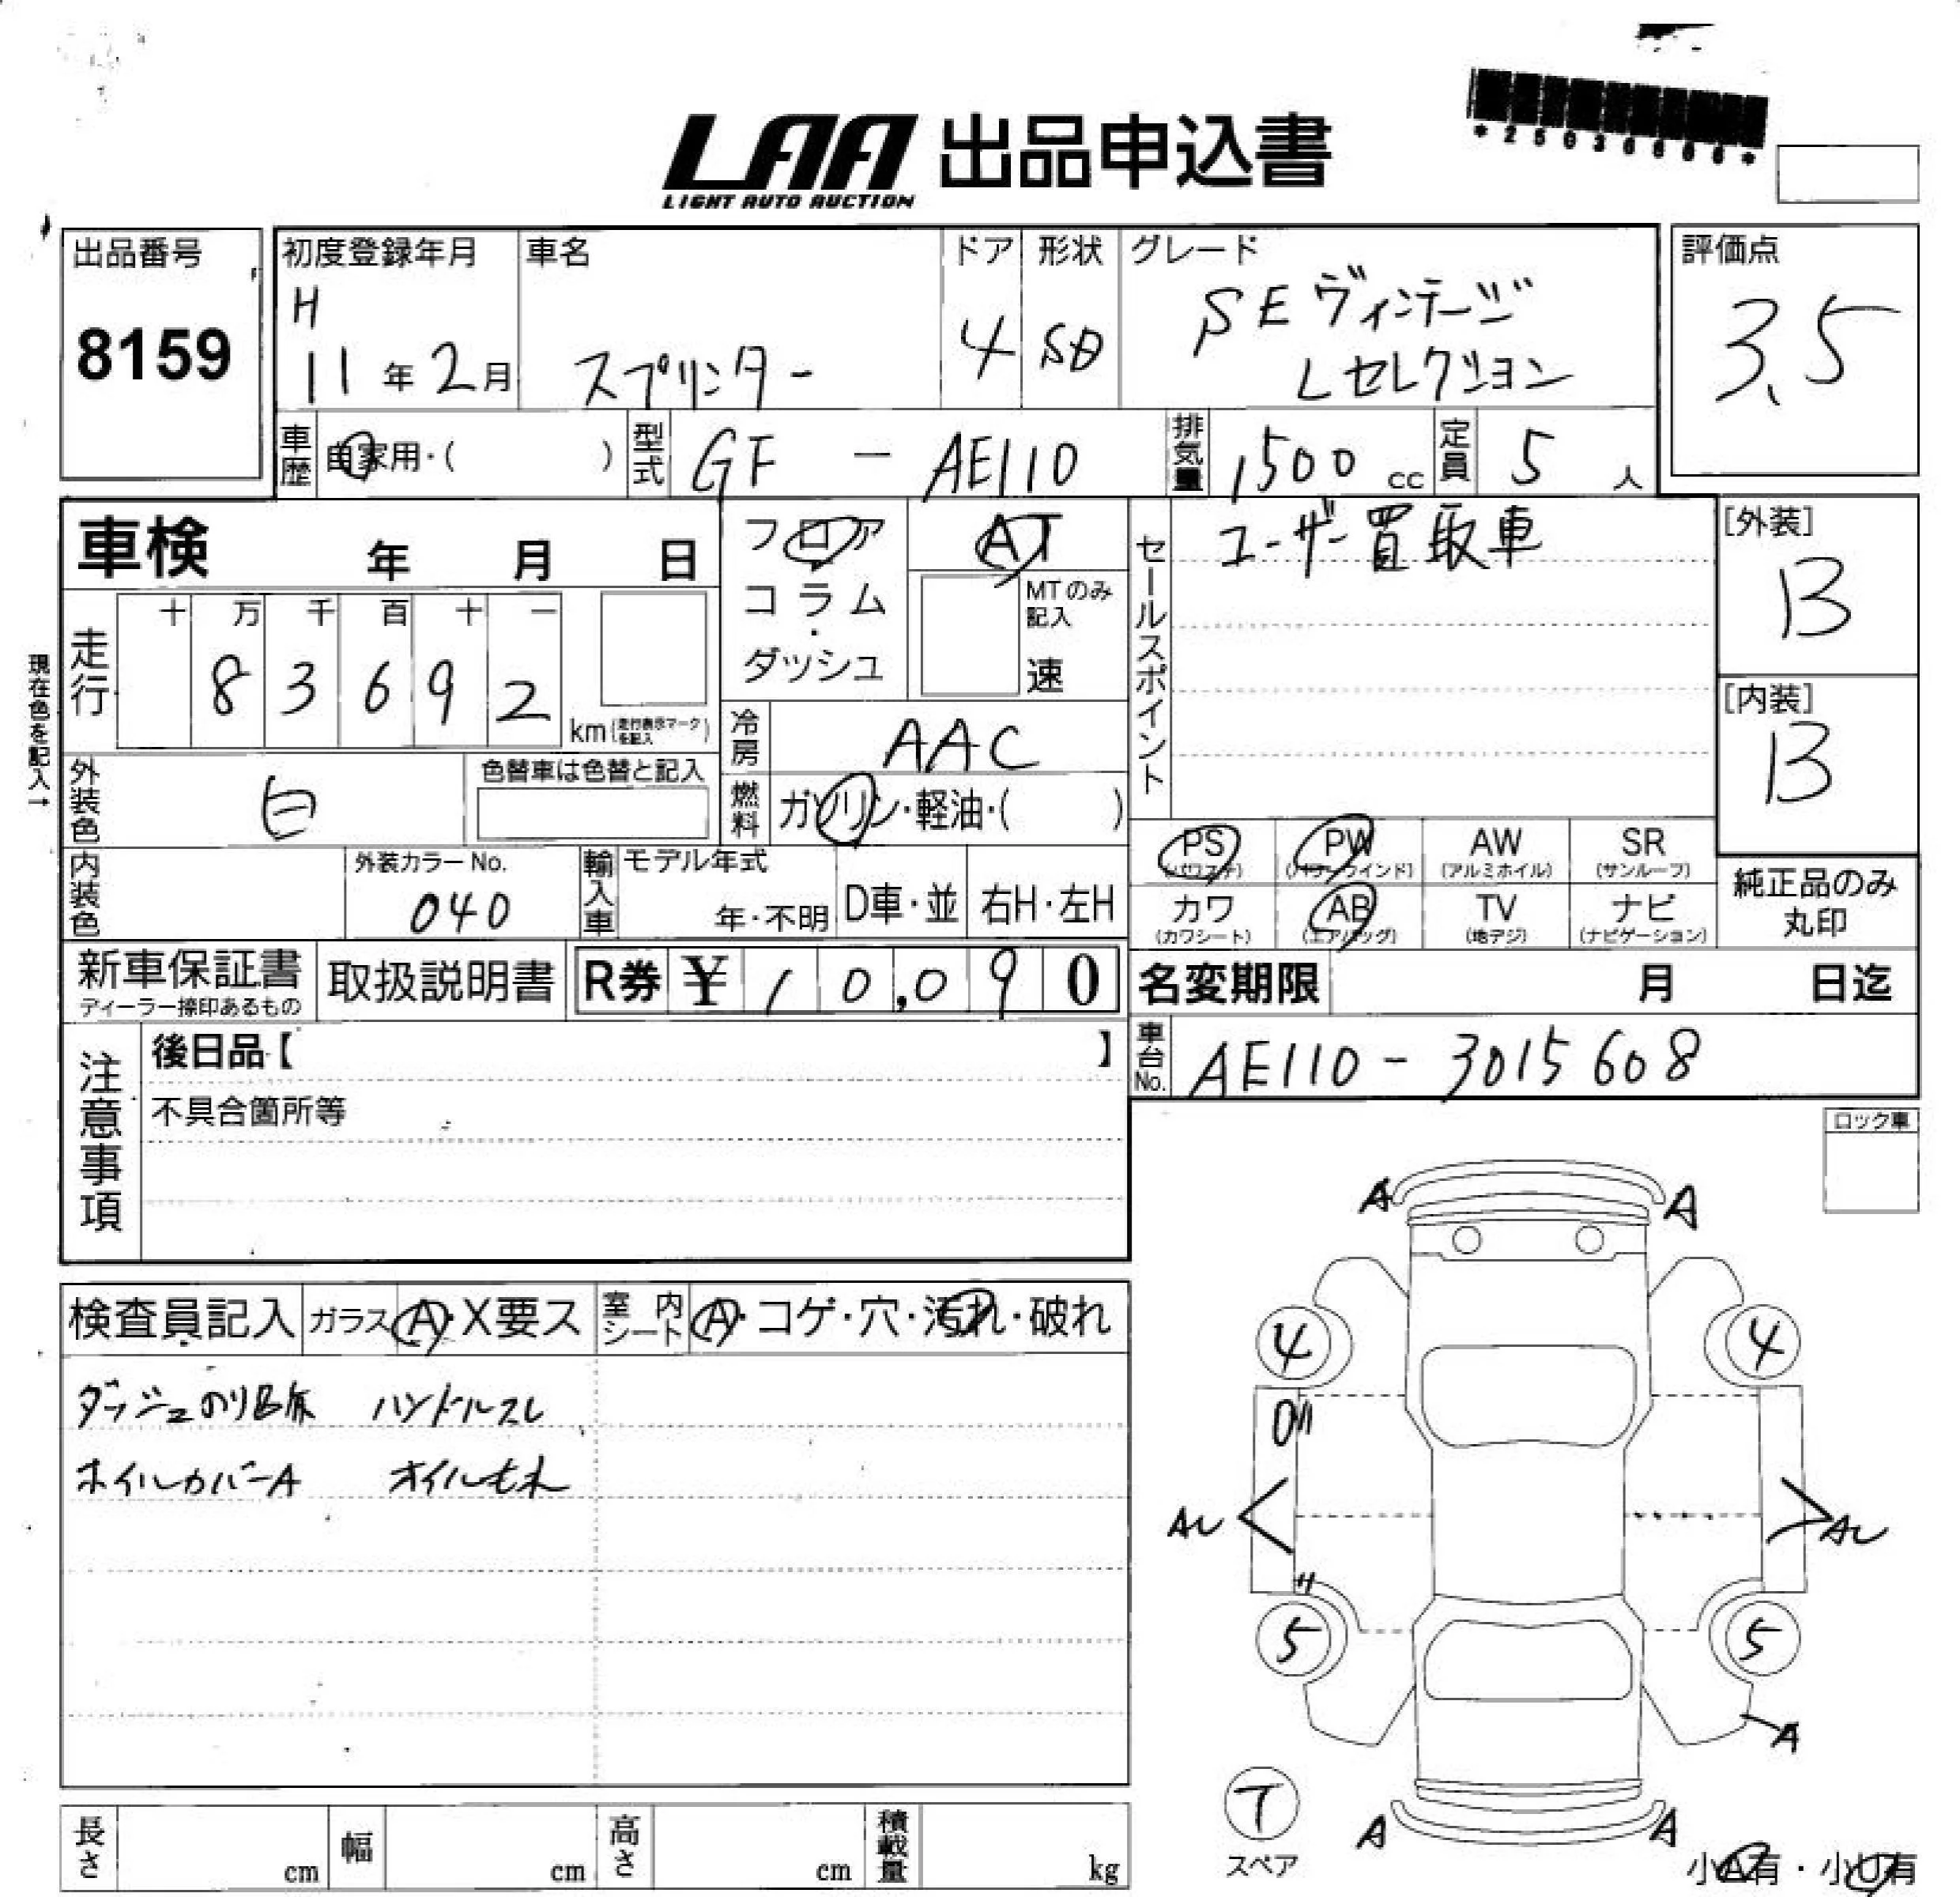 LAA 出品申込書
LIGHT AUTO AUCTION
*25036606*
出品番号
8159
初度登録年月
H
11年2月
車名
スプリンター
ドア
4
形状
SD
グレード
SEヴィンテージ
Lセレクション
評価点
3.5
車歴
自家用・( )
型式
GF - AE110
排気量
1,500 cc
定員
5人
車検 年 月 日
フロア
コラム
・
ダッシュ
AT
MTのみ
記入
速
セールスポイント
ユーザー買取車
[外装]
B
[内装]
B
現在色を記入→
走行
十 万 千 百 十 一
8 3 6 9 2
km(走行表示マークを記入)
冷房
AAC
外装色
白
色替車は色替と記入
燃料
ガソリン・軽油・( )
PS PW AW SR
(パワステ) (パワーウインド) (アルミホイル) (サンルーフ)
内装色
外装カラーNo.
040
輸入車
モデル年式
年・不明
D車・並
右H・左H
カワ AB TV ナビ
(カワシート) (エアバッグ) (地デジ) (ナビゲーション)
純正品のみ
丸印
新車保証書
ディーラー捺印あるもの
取扱説明書
R券 ¥ 10,090
名変期限 月 日迄
注意事項
後日品【 】
不具合箇所等
車台No.
AE110 - 3015608
ロック車
検査員記入
ガラス A・X要ス
室内シート A・コゲ・穴・汚れ・破れ
ダッシュのり跡 ハンドルスレ
ホイルカバーA オイルもれ
A A
4 4
O〃
AU AU
〃
5 5
A
T
スペア
A A
小A有・小U有
長さ cm
幅 cm
高さ cm
積載量 kg